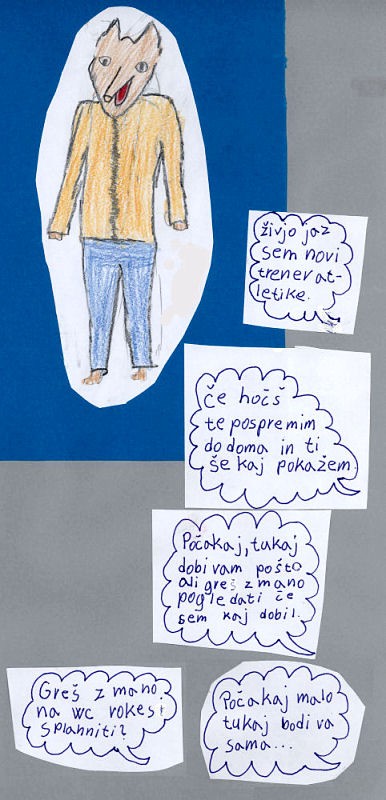 živjo jaz
sem novi
trener at-
letike.
Če hočš
te pospremim
do doma in ti
še kaj pokažem
Počakaj, tukaj
dobivam pošto
ali greš z mano
pogledati če
sem kaj dobil.
Greš z mano
na wc rokes
splahniti?
Počakaj malo
tukaj bodi va
sama...